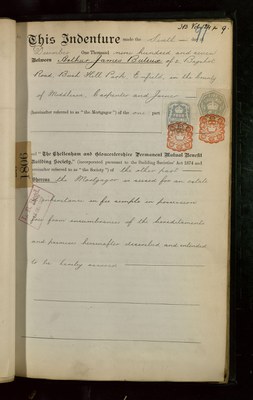 This Indenture made the Sixth day
One Thousand nine hundred and seven
Between Arthur James of 2
Road, Bush Hill Park Enfield, in the County
of Middlesex, Carpenter and Joiner
(hereinafter referred to as "the Mortgagor") of the one part
and "The Cheltenham and Gloucestershire Permanent Mutual Benefit
Building Society," (incorporated pursuant to the Building Societies Act 1874 and
hereinafter referred to as "the Society") of the other part
Whereas the Mortgagor is seized for an estate
of inheritance in fee simple in possession
free from incumbrances of the hereditaments
and premises hereinafter described and intended
to be hereby assured